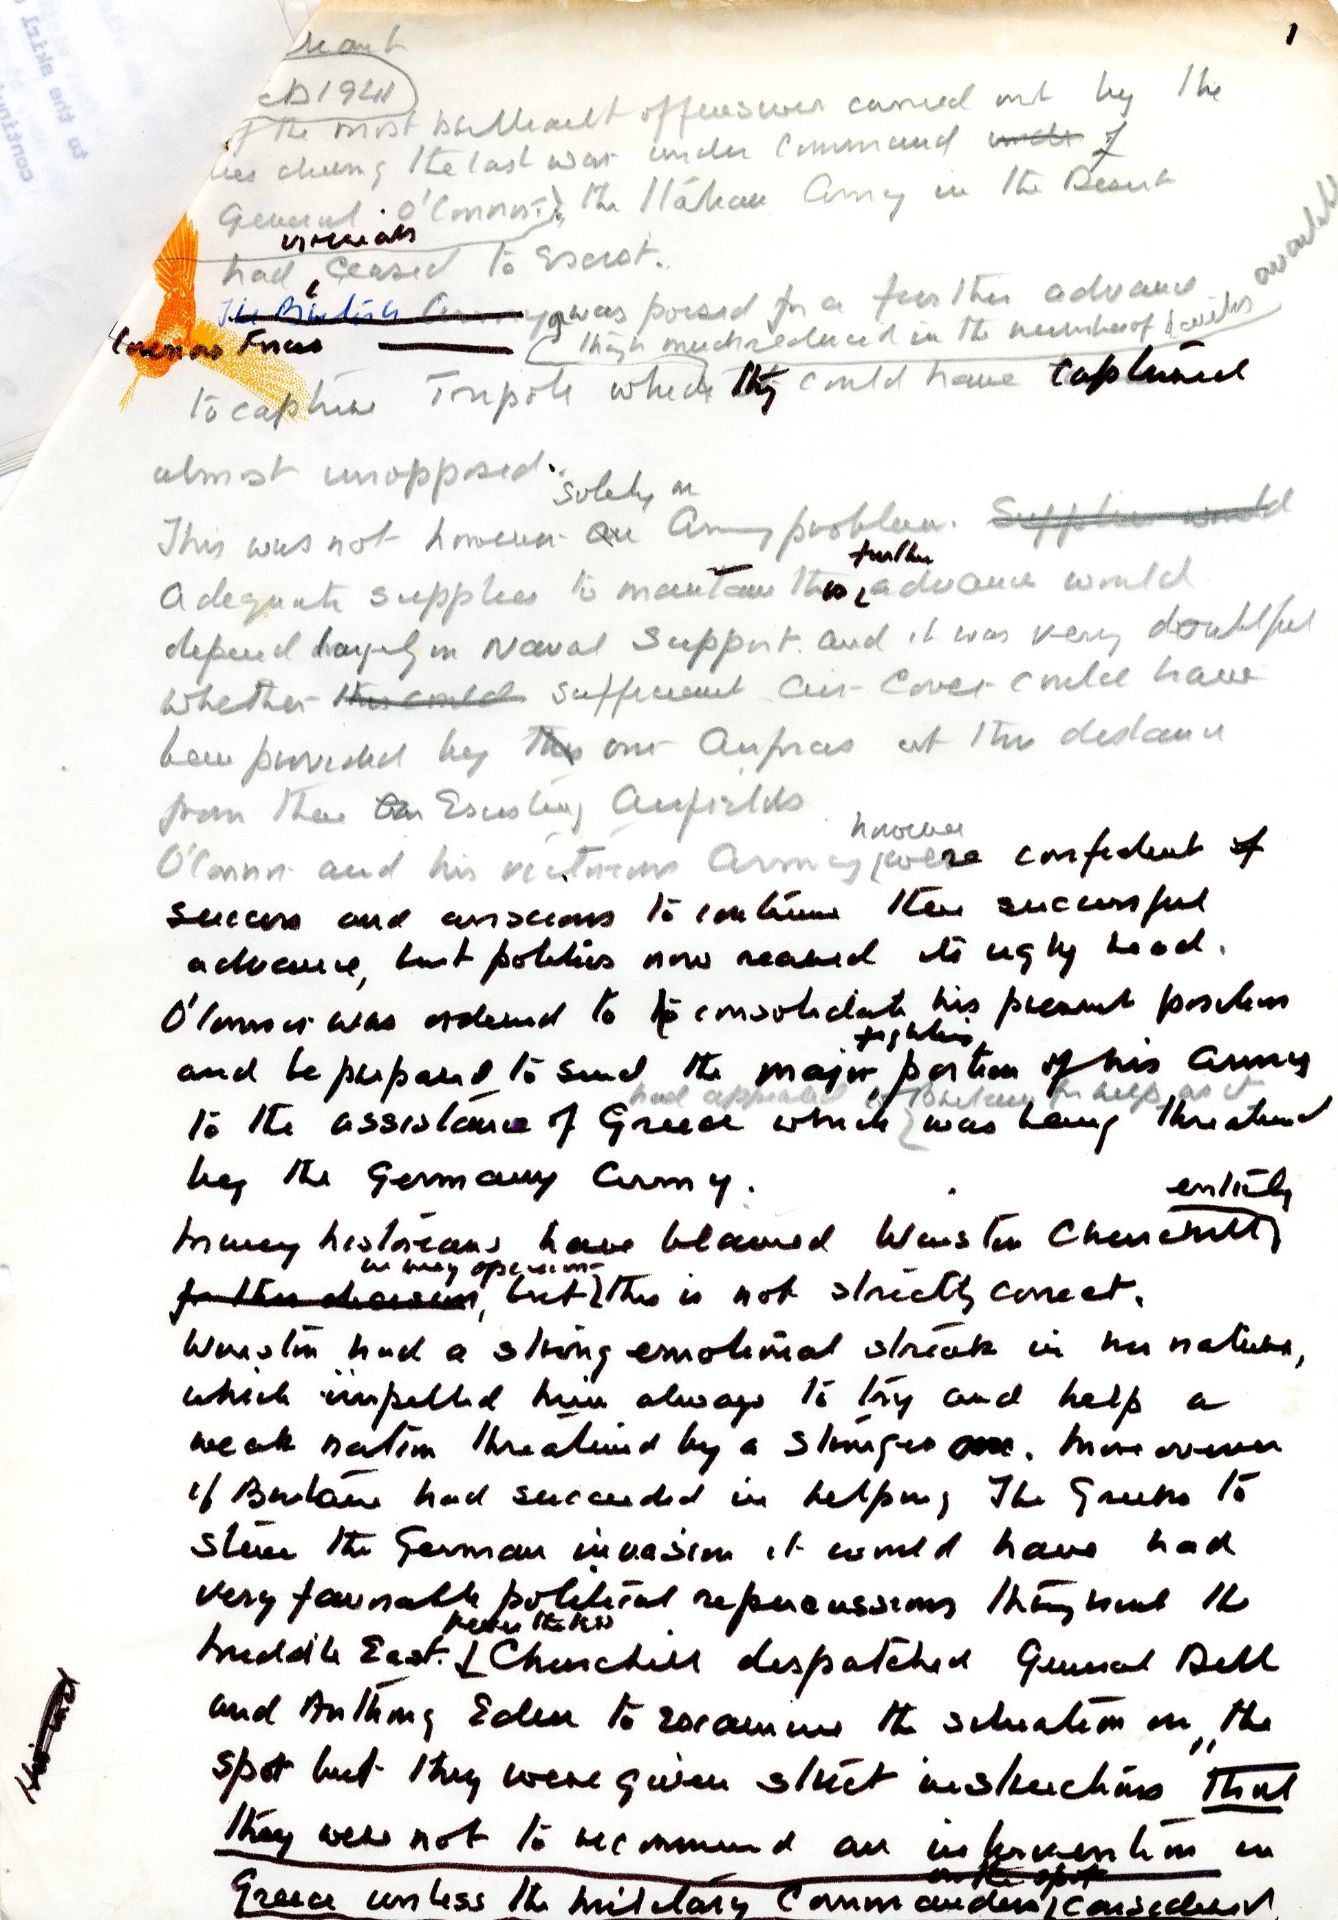 1
1941
of the most brilliant offensives carried out by the
during the last war under command under of
General O'Connor, the Italian Army in the Desert
virtually
had ceased to Exist.
The British Army was poised for a further advance
though much reduced in the number of available
Forces
to capture Tripoli which they could have captured
almost unopposed.
solely an
This was not however an Army problem. Supplies would
further
Adequate supplies to maintain this advance would
depend largely on Naval Support. and it was very doubtful
whether this could sufficient air cover could have
been provided by this our Airforces at this distance
from their Existing Airfields
however
O'Connor and his victorious Army were confident of
success and anxious to continue their successful
advance, but politics now reared its ugly head.
O'Connor was ordered to to consolidate his present position
fighting
and be prepared to send the major portion of his Army
had appealed to Britain for help as it
to the assistance of Greece which was being threatened
by the Germany Army.
entirely
Many historians have blamed Winston Churchill
in my opinion
for this decision, but this is not strictly correct.
Winston had a strong emotional streak in his nature,
which impelled him always to try and help a
weak nation threatened by a stronger one. Moreover
if Britain had succeeded in helping The Greeks to
stem the German invasion it would have had
very favorable political repercussions throughout the
nevertheless
Middle East. Churchill despatched General Dill
and Anthony Eden to examine the situation on the
spot but they were given strict instructions "that
they were not to recommend an intervention in
on the spot
Greece unless the Military Commanders considered